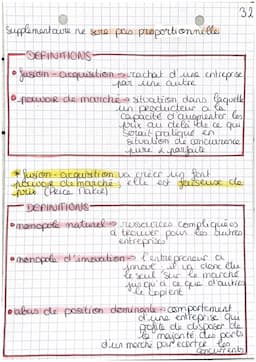 32
supplémentaire ne sera pas proportionnelle
DEFINITIONS
fusion-acquisition → rachat d'une entreprise
par une autre
pouvoir de marché → situation dans laquelle
un producteur a la
capacité d'augmenter les
prix au delà de ce qui
serait pratiqué en
situation de concurrence
pure & parfaite
* fusion-acquisition va créer un fort
pouvoir de marché, elle est faiseuse de
prix (Price Maker)
DEFINITIONS
monopole naturel → ressources compliquées
à trouver pour les autres
entreprises
monopole d'innovation → l'entrepreneur a
innové : il va donc être
le seul sur le marché
jusqu'à ce que d'autres
le copient
abus de position dominante → comportement
d'une entreprise qui
profite de disposer de
la majorité des parts
d'un marché pour écarter les
concurrents